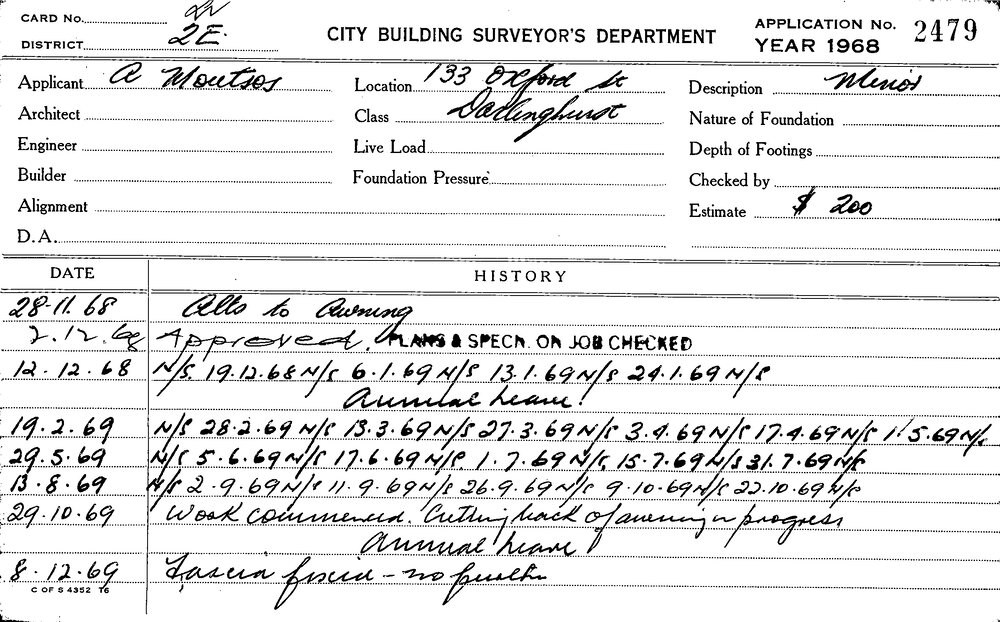 CARD No.
DISTRICT 2E.
CITY BUILDING SURVEYOR'S DEPARTMENT
APPLICATION No. 2479
YEAR 1968
Applicant A Moutsos
Location 133 Oxford St
Description Minor
Architect
Class Darlinghurst
Nature of Foundation
Engineer
Live Load
Depth of Footings
Builder
Foundation Pressure
Checked by
Alignment
Estimate $ 200
D.A.
DATE HISTORY
28.11.68 Alts to Awning
2.12.68 Approved. PLANS & SPECN. ON JOB CHECKED
12.12.68 N/S. 19.12.68 N/S 6.1.69 N/S 13.1.69 N/S 24.1.69 N/S
Annual Leave!
19.2.69 N/S 28.2.69 N/S 13.3.69 N/S 27.3.69 N/S 3.4.69 N/S 17.4.69 N/S 1.5.69 N/S
29.5.69 N/S 5.6.69 N/S 17.6.69 N/S 1.7.69 N/S. 15.7.69 N/S 31.7.69 N/S
13.8.69 N/S 2.9.69 N/S 11.9.69 N/S 26.9.69 N/S 9.10.69 N/S 22.10.69 N/S
29.10.69 Work commenced. Cutting back of awning in progress
Annual Leave
8.12.69 Fascia fixed - no further
C OF S 4352 T6